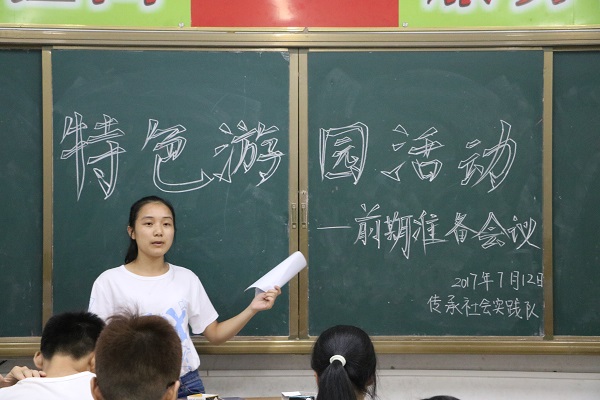 特色游园活动
—前期准备会议
2017年7月12日
传承社会实践队